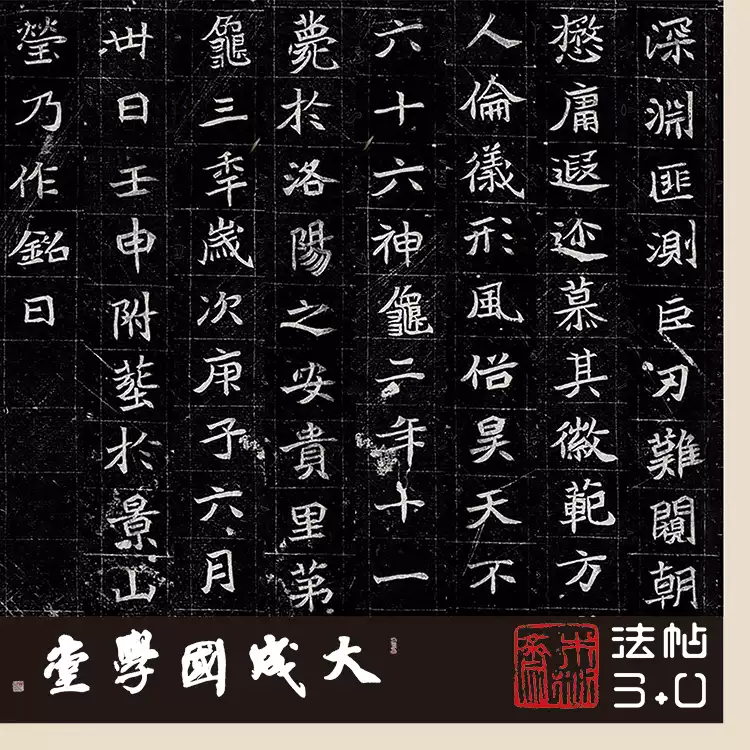 深淵匪測叵刃難闚朝
懋庸遐迩慕其徽範方
人倫儀形風俗昊天不
六十六神龜二年十一
薨於洛陽之安貴里第
龜三年歲次庚子六月
卅日壬申附葬於景山
瑩乃作銘曰
大成國學堂
法帖
3.0